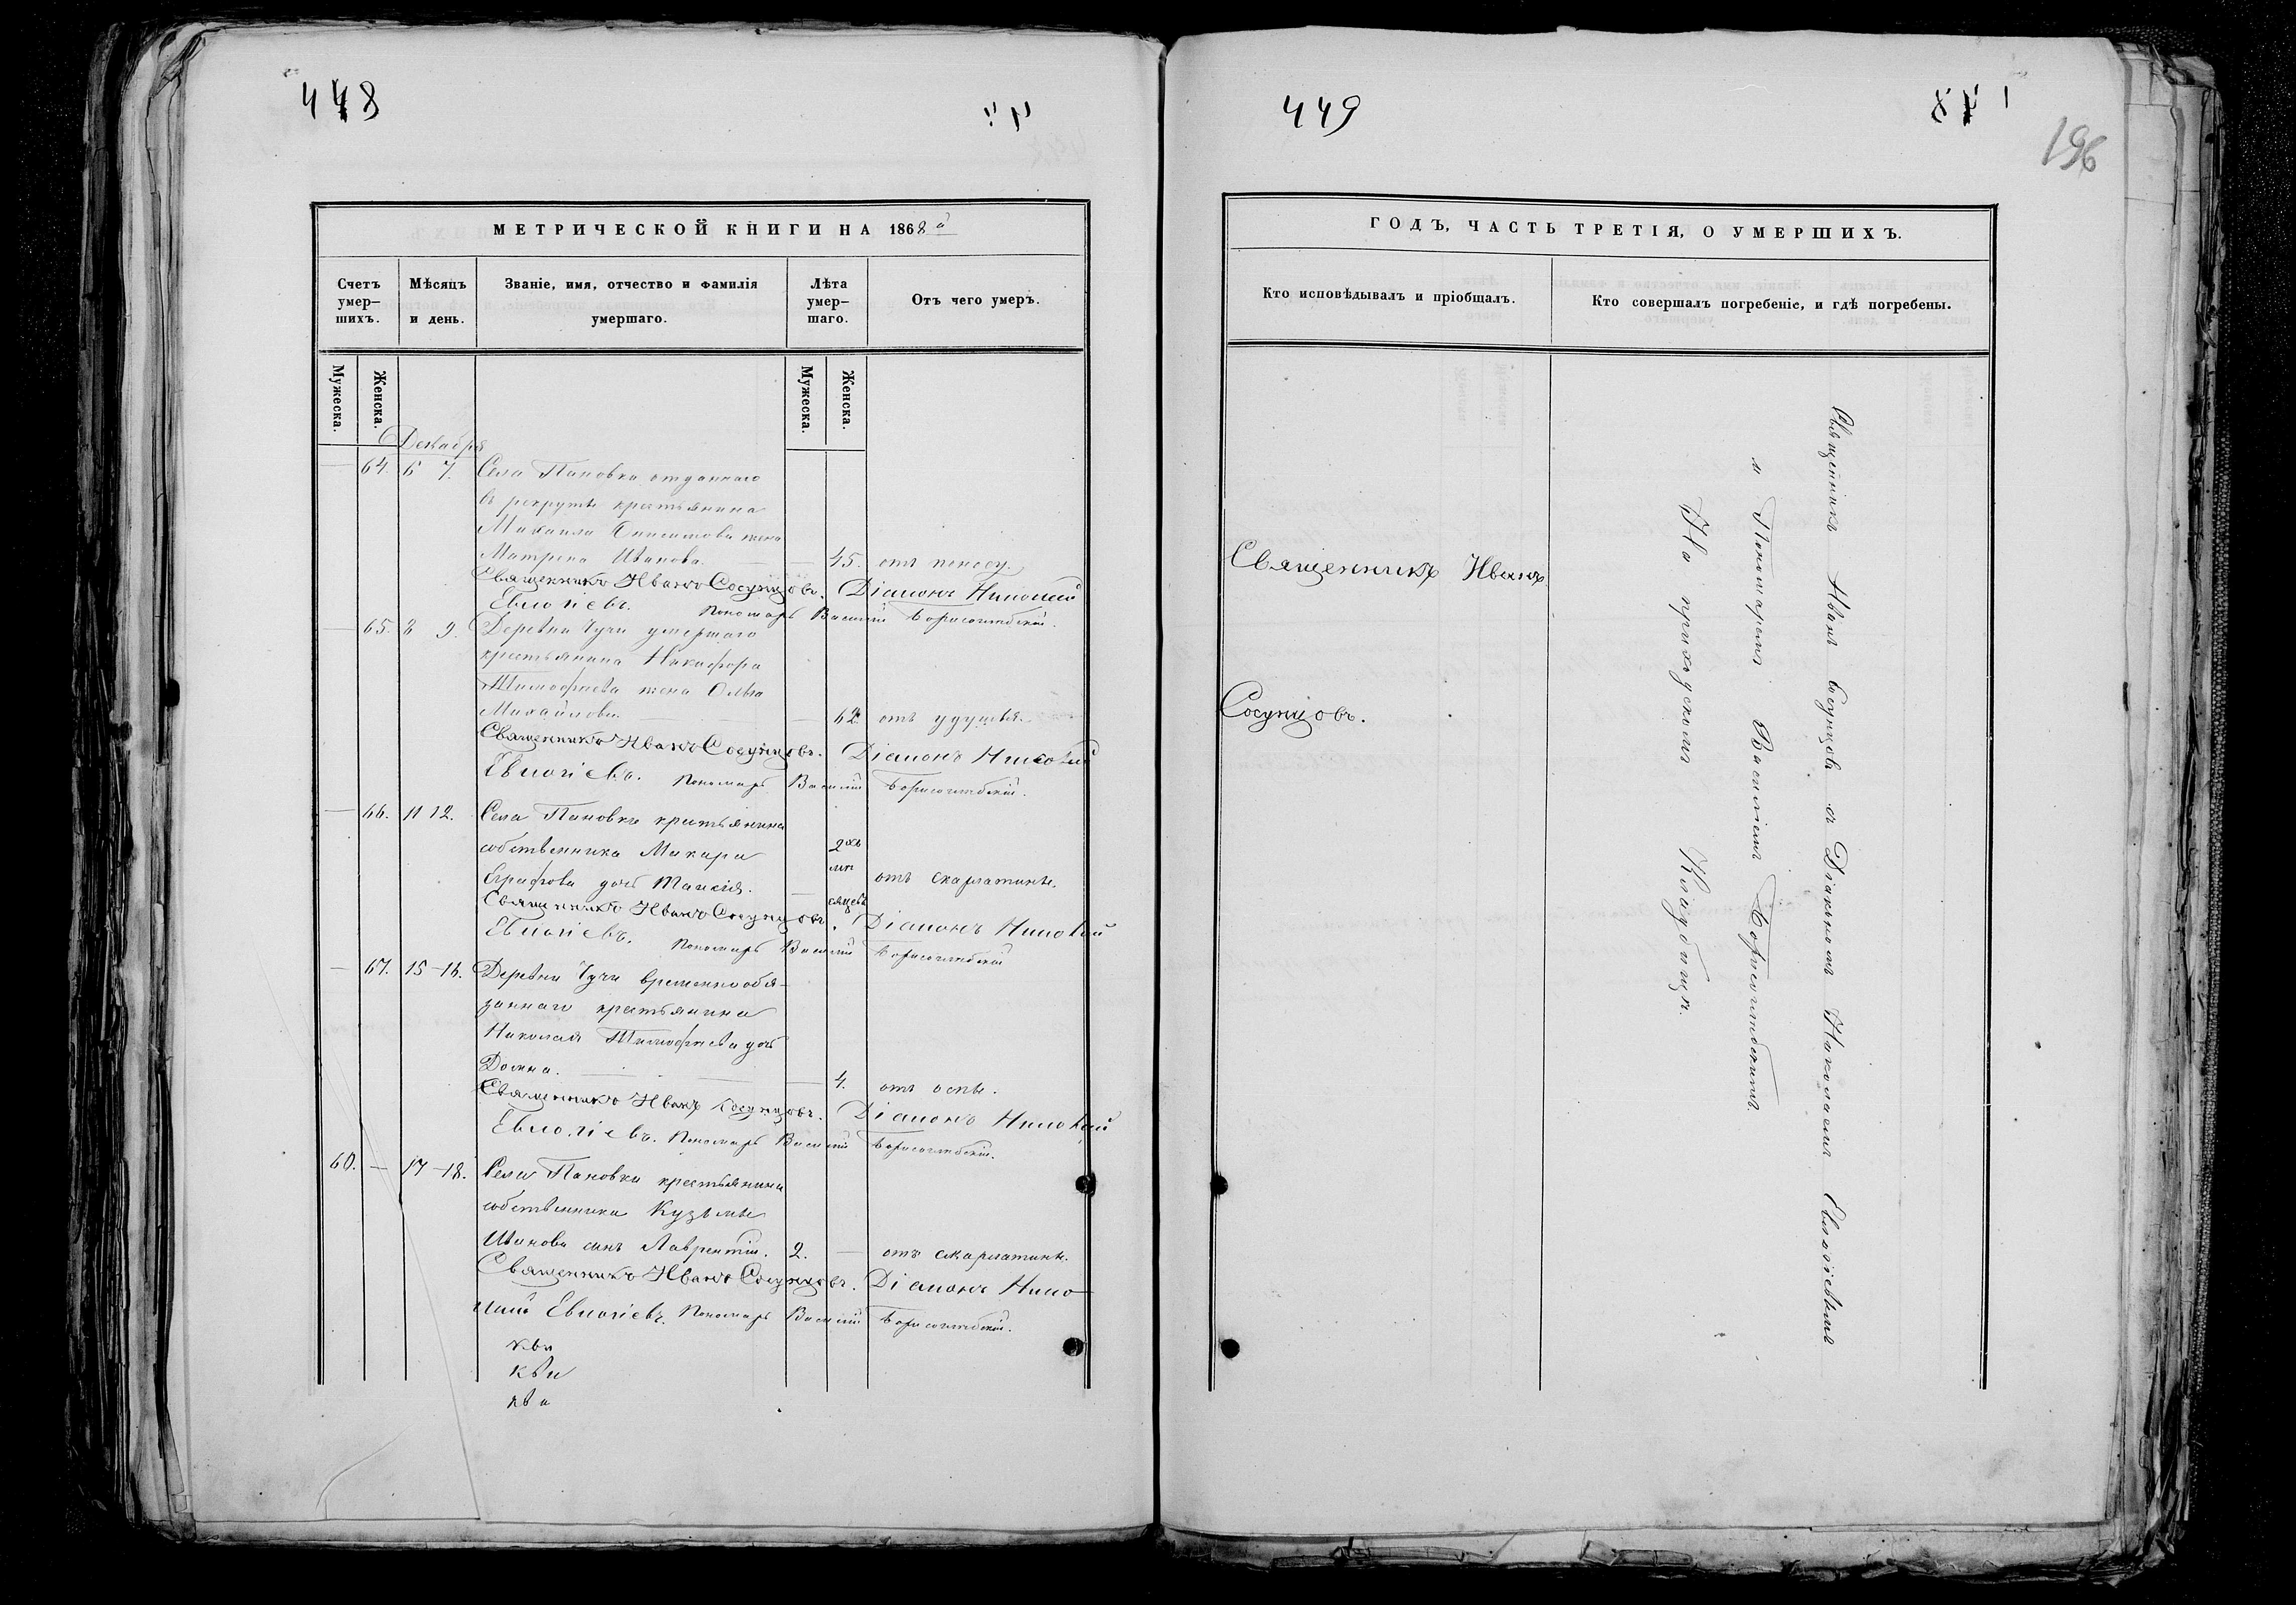 448
МЕТРИЧЕСКОЙ КНИГИ НА 1868й
Счетъ умер-шихъ.
Мѣсяцъ и день.
Званіе, имя, отчество и фамилія умершаго.
Лѣта умер-шаго.
Отъ чего умеръ.
Мужеска.
Женска.
Мужеска.
Женска.
Декабря
— 64. 6 7. Села Пановки отданнаго
въ рекруты крестьянина
Михаила жена
Матрена Иванова. — 45. отъ поносу.
Священникъ Иванъ Сосунцовъ. Діаконъ Николай
Евлогіевъ. Пономарь Василій Борисоглѣбскій.
— 65. 8 9. Деревни Чучи умершаго
крестьянина Никифора
Тимофеева жена Ольга
Михайлова. — 62. отъ удушья.
Священникъ Иванъ Сосунцовъ. Діаконъ Николай
Евлогіевъ. Пономарь Василій Борисоглѣбскій.
— 66. 11 12. Села Пановки крестьянина
собственника Макара 2хъ
мѣ
дочь Таисія. — отъ скарлатины.
сяцевъ
Священникъ Иванъ Сосунцовъ. Діаконъ Николай
Евлогіевъ. Пономарь Василій Борисоглѣбскій
— 67. 15—16. Деревни Чучи временнообя-
заннаго крестьянина
Николая Тимофеева дочь
Домна. — 4. отъ оспы.
Священникъ Иванъ Сосунцовъ. Діаконъ Николай
Евлогіевъ. Пономарь Василій Борисоглѣбскій.
60. — 17—18. Села Пановки крестьянина
собственника Кузьмы
Иванова сынъ Лаврентій. 2. — отъ скарлатины.
Священникъ Иванъ Сосунцовъ. Діаконъ Нико-
лай Евлогіевъ. Пономарь Василій Борисоглѣбскій.
449
196
ГОДЪ, ЧАСТЬ ТРЕТІЯ, О УМЕРШИХЪ.
Кто исповѣдывалъ и пріобщалъ.
Кто совершалъ погребеніе, и гдѣ погребены.
Священникъ Иванъ
Сосунцовъ.
Священникъ Иванъ Сосунцовъ съ Діакономъ Николаемъ Евлогіевымъ
и Пономаремъ Василіемъ Борисоглѣбскимъ.
На приходскомъ Кладбищѣ.